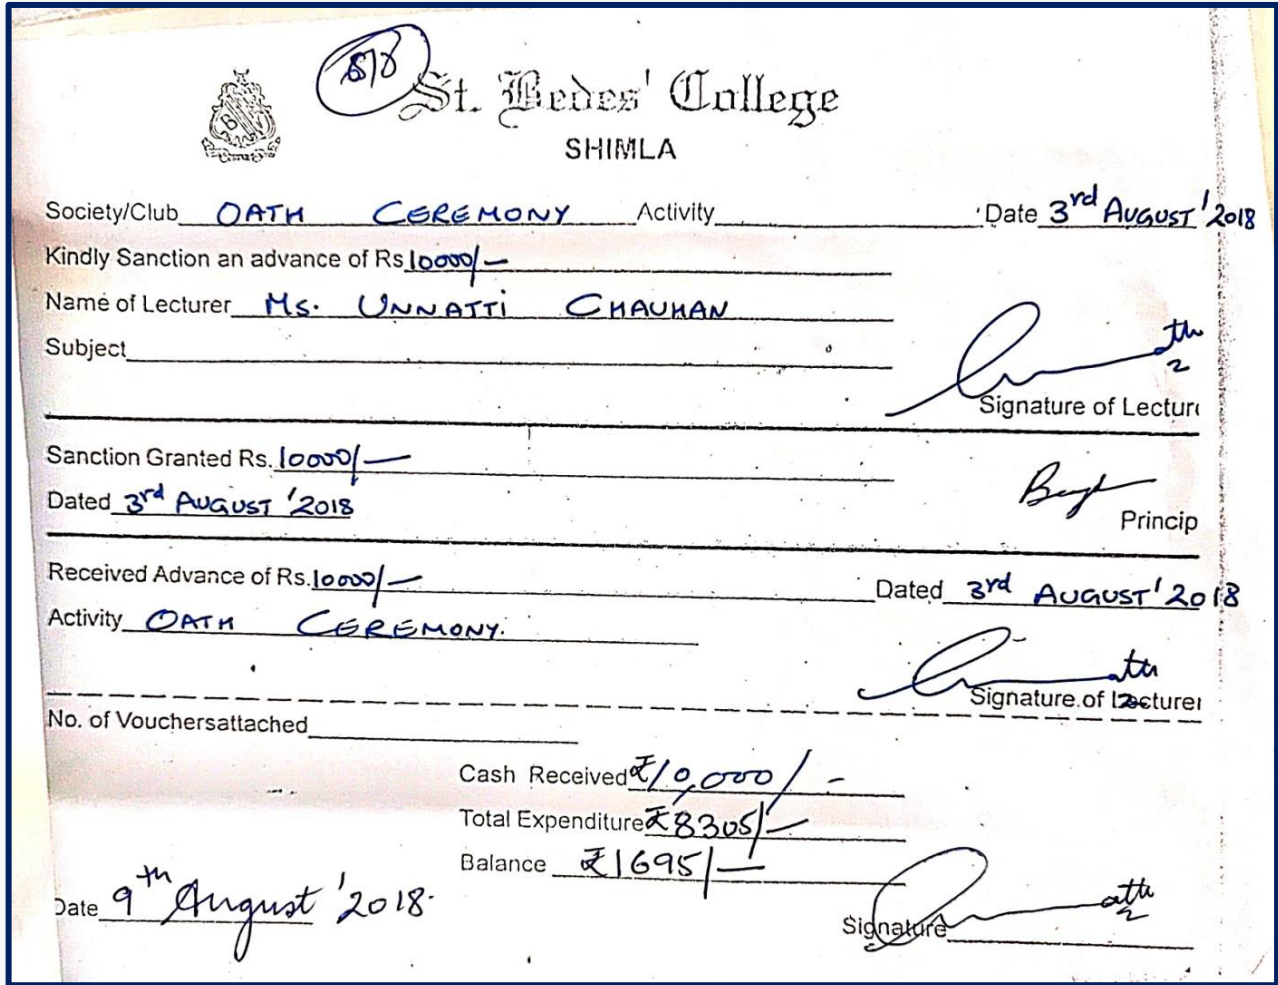 St. Bedes' College
SHIMLA
Society/Club OATH CEREMONY Activity Date 3rd AUGUST '2018
Kindly Sanction an advance of Rs 10000/-
Name of Lecturer Ms. UNNATTI CHAUHAN
Subject
Signature of Lectur
Sanction Granted Rs. 10000/-
Dated 3rd AUGUST '2018
Princip
Received Advance of Rs. 10000/- Dated 3rd AUGUST '2018
Activity OATH CEREMONY.
Signature of Lecturer
No. of Vouchersattached
Cash Received ₹10,000/-
Total Expenditure ₹8305/-
Balance ₹1695/-
Date 9th August '2018.
Signature